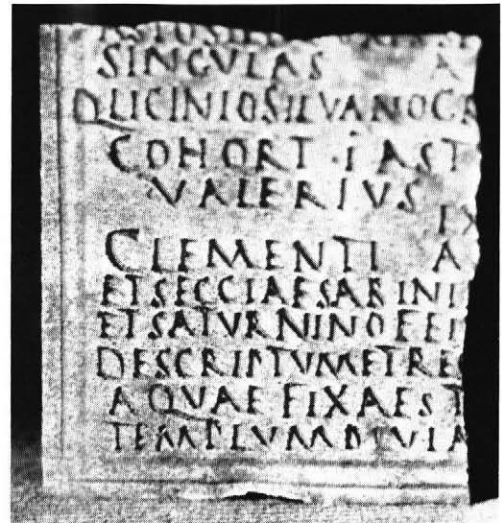 SINGVLAS A
Q LICINIO SILVANO GR
COHORT · I AST
VALERIVS
EX
CLEMENTI A
ET SECCIAE SABINI
ET SATVRNINO F EI
DESCRIPTVM ET REC
A QVAE FIXA EST
TEMPLVM DIVI A